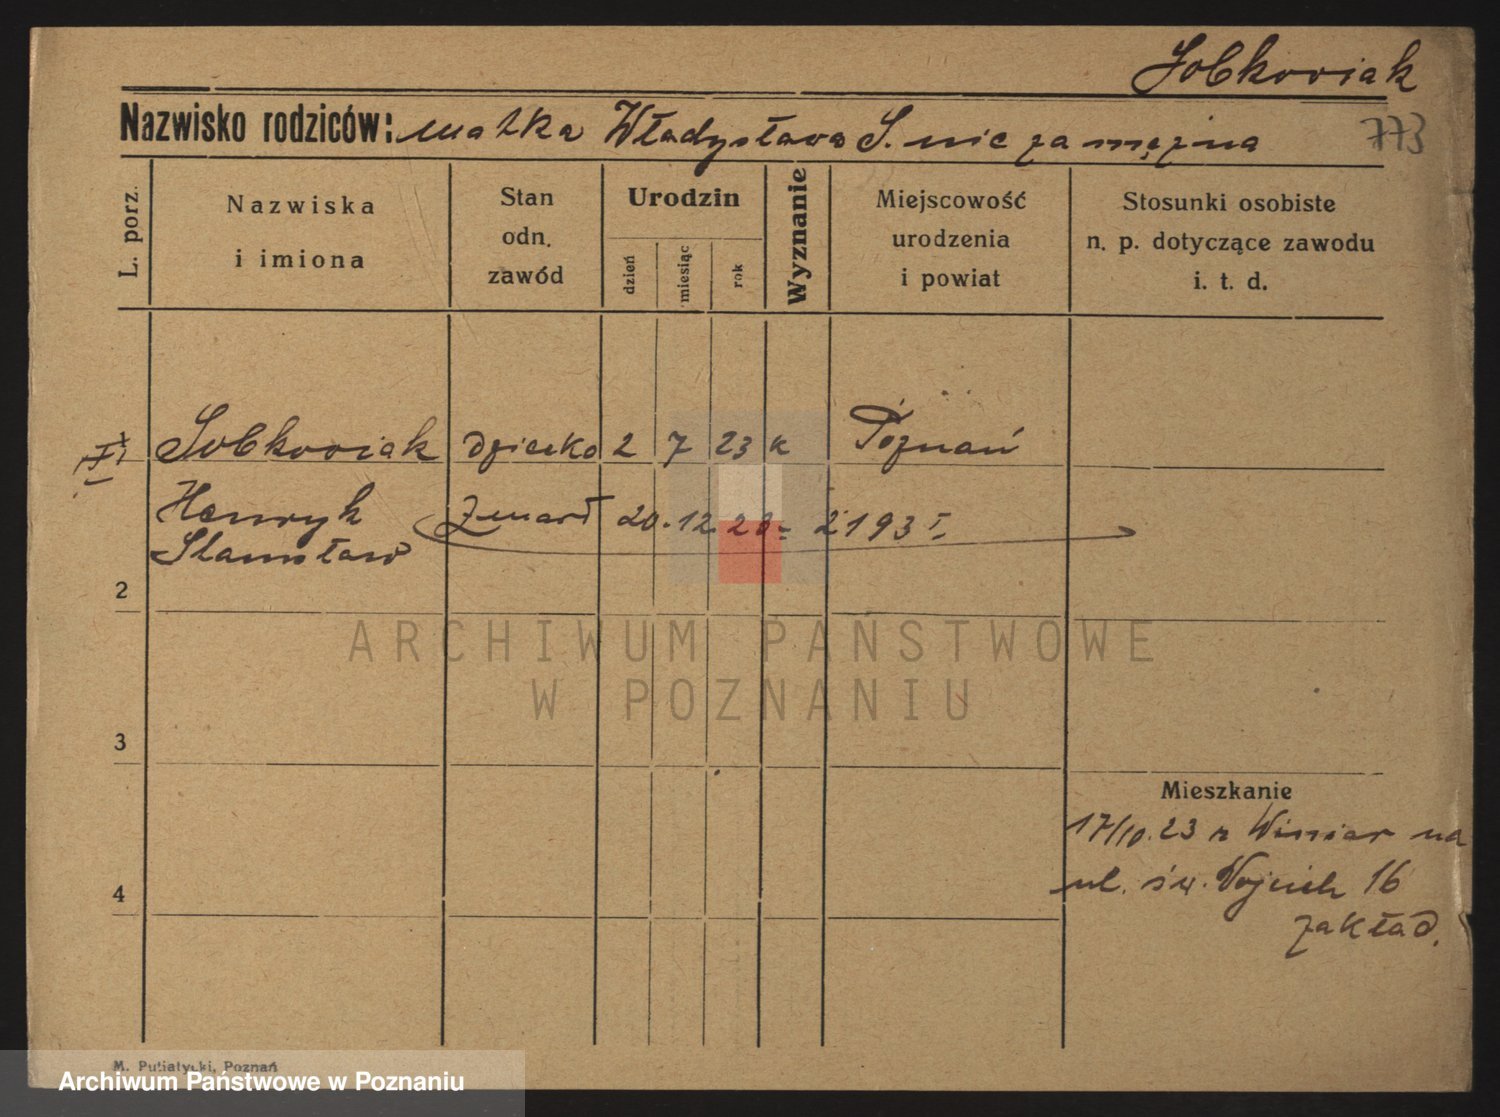 Sobkowiak
Nazwisko rodziców: matka Władysława S. nie zamężna
773
L. porz.
Nazwiska i imiona
Stan odn. zawód
Urodzin
dzień
miesiąc
rok
Wyznanie
Miejscowość urodzenia i powiat
Stosunki osobiste n. p. dotyczące zawodu i. t. d.
Sobkowiak dziecko 2 7 23 k Poznań
Henryk Zmarł 20.12.23 2193
Stanisław
2
ARCHIWUM PAŃSTWOWE
W POZNANIU
3
Mieszkanie
17/10.23 z Winiar na
ul. św. Wojciech 16
zakład.
4
M. Putiatycki, Poznań
Archiwum Państwowe w Poznaniu